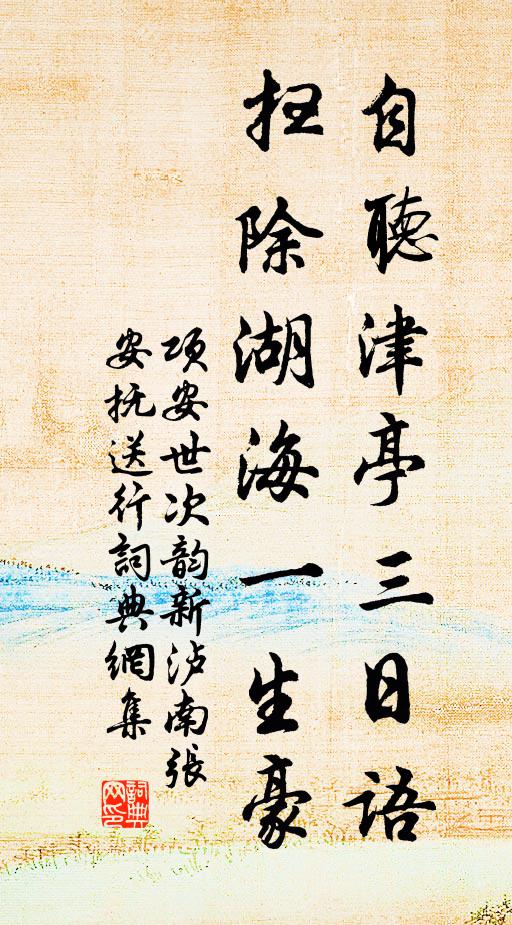 自聽津亭三日語
扫除湖海一生豪
项安世次韵新泸南張
安抚送行詞典網集
詞典网印